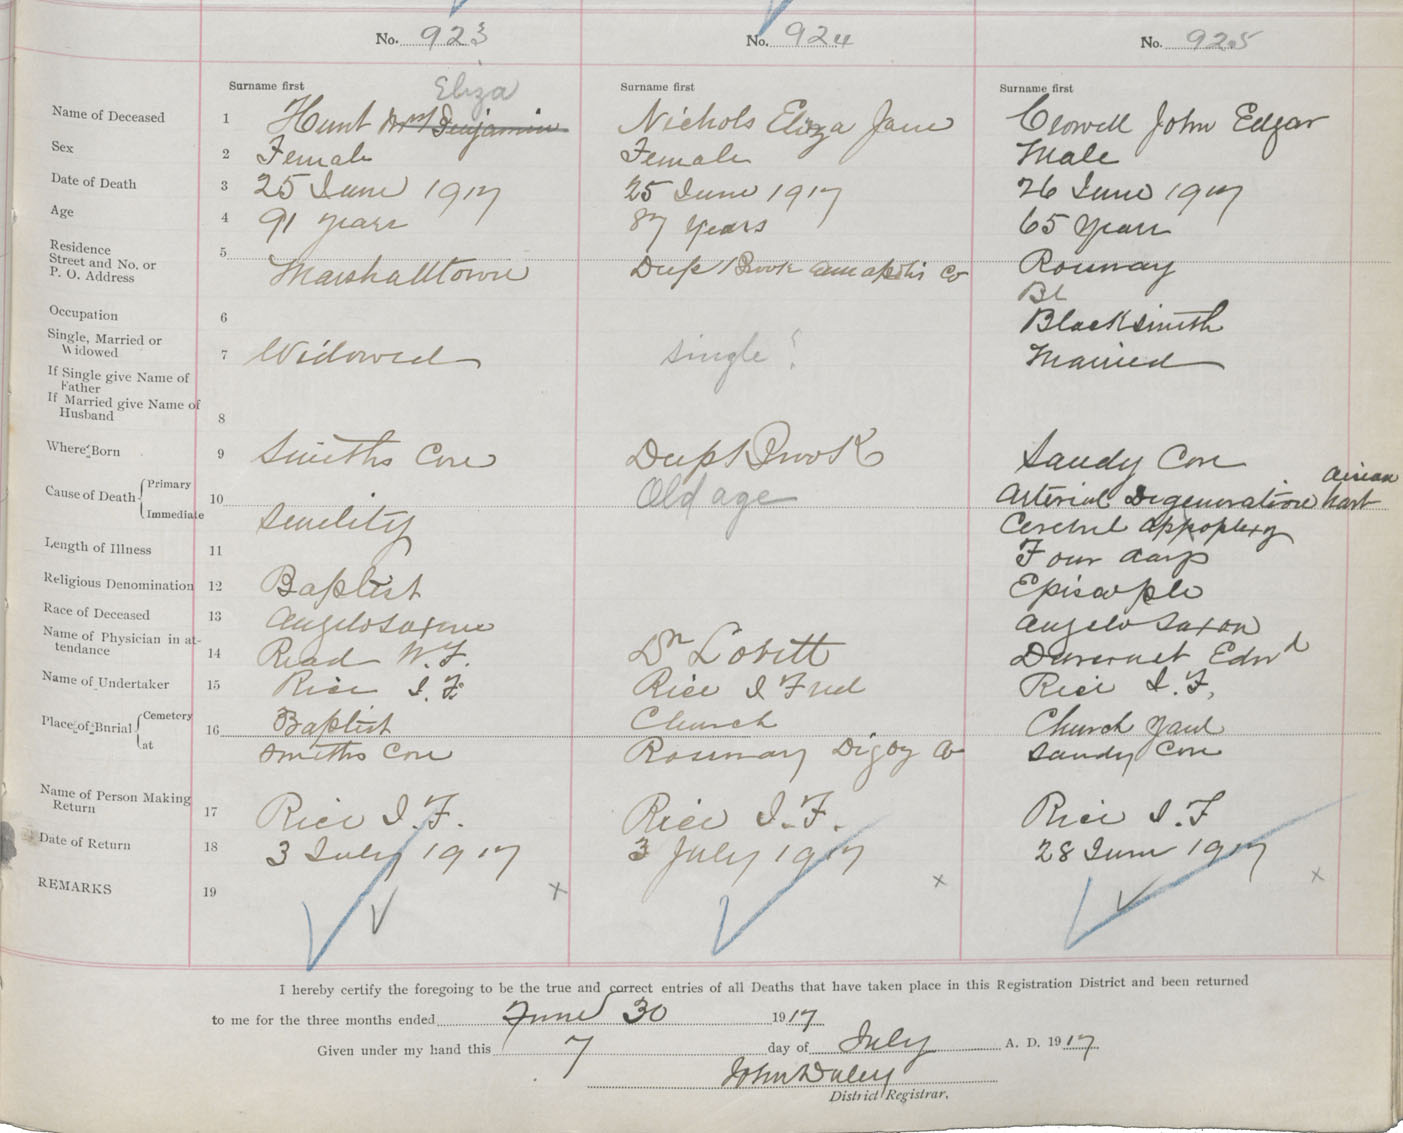 No. 923 No. 924 No. 925
Surname first Surname first Surname first
Eliza
Name of Deceased 1 Hunt Mrs Benjamin Nichols Eliza Jane Crowell John Edgar
Sex 2 Female Female Male
Date of Death 3 25 June 1917 25 June 1917 26 June 1917
Age 4 91 years 87 years 65 years
Residence
Street and No. or
P. O. Address 5 Marshalltown Deep Brook Annapolis Co Rosway
Bl
Occupation 6 Blacksmith
Single, Married or
Widowed 7 Widowed single? Married
If Single give Name of
Father
If Married give Name of
Husband 8
Where Born 9 Smiths Cove Deep Brook Sandy Cove
Cause of Death Primary 10 Old age Arterial Degeneration hart
Immediate Senility Cerebrl appoplexy
Length of Illness 11 Four days
Religious Denomination 12 Baptist Episcople
Race of Deceased 13 Angelosaxon Angelo Saxon
Name of Physician in at-
tendance 14 Read W. F. Dr Lovitt Duvernet Edwd
Name of Undertaker 15 Rice I. F. Rice I Fred Rice I. F.
Place of Burial Cemetery 16 Baptist Church Church Yard
at Smiths Cove Rosway Digby Co Sandy Cove
Name of Person Making
Return 17 Rice I. F. Rice I. F. Rice I. F
Date of Return 18 3 July 1917 3 July 1917 28 June 1917
REMARKS 19 x x x
I hereby certify the foregoing to be the true and correct entries of all Deaths that have taken place in this Registration District and been returned
to me for the three months ended June 30 1917
Given under my hand this 7 day of July A. D. 1917
John Daley
District Registrar.